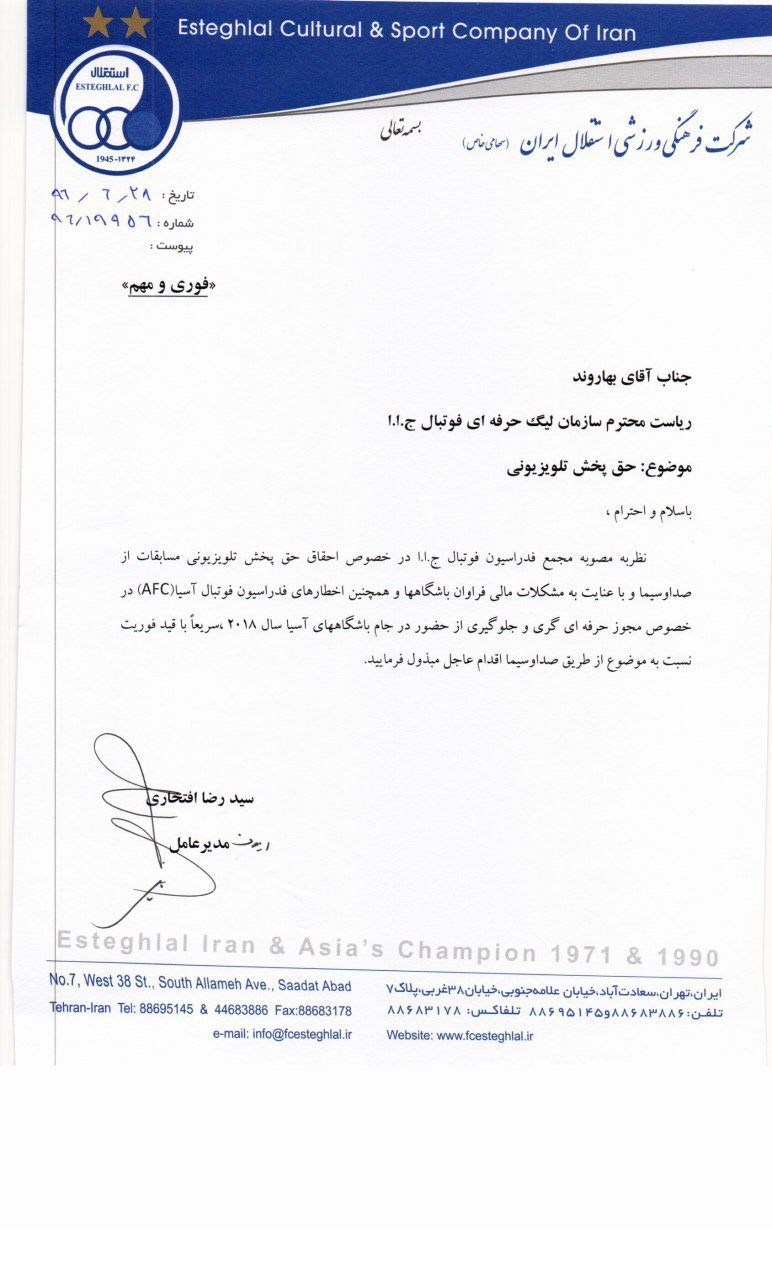 Esteghlal Cultural & Sport Company Of Iran
استقلال
ESTEGHLAL F.C
1945-۱۳۲۴
بسمه تعالی
شرکت فرهنگی ورزشی استقلال ایران (سهامی خاص)
تاریخ : ۹۶ / ۶ / ۲۸
شماره : ۹۶/۱۹۹۵۶
پیوست :
«فوری و مهم»
جناب آقای بهاروند
ریاست محترم سازمان لیگ حرفه ای فوتبال ج.ا.ا
موضوع: حق پخش تلویزیونی
باسلام و احترام ،
نظربه مصوبه مجمع فدراسیون فوتبال ج.ا.ا در خصوص احقاق حق پخش تلویزیونی مسابقات از
صداوسیما و با عنایت به مشکلات مالی فراوان باشگاهها و همچنین اخطارهای فدراسیون فوتبال آسیا(AFC) در
خصوص مجوز حرفه ای گری و جلوگیری از حضور در جام باشگاههای آسیا سال ۲۰۱۸ ،سریعاً با قید فوریت
نسبت به موضوع از طریق صداوسیما اقدام عاجل مبذول فرمایید.
سید رضا افتخاری
مدیرعامل
Esteghlal Iran & Asia's Champion 1971 & 1990
No.7, West 38 St., South Allameh Ave., Saadat Abad
Tehran-Iran Tel: 88695145 & 44683886 Fax:88683178
e-mail: info@fcesteghlal.ir
ایران،تهران،سعادت‌آباد،خیابان علامه‌جنوبی،خیابان۳۸غربی،پلاک۷
تلفن:۸۸۶۸۳۸۸۶و۸۸۶۹۵۱۴۵ تلفاکس: ۸۸۶۸۳۱۷۸
Website: www.fcesteghlal.ir